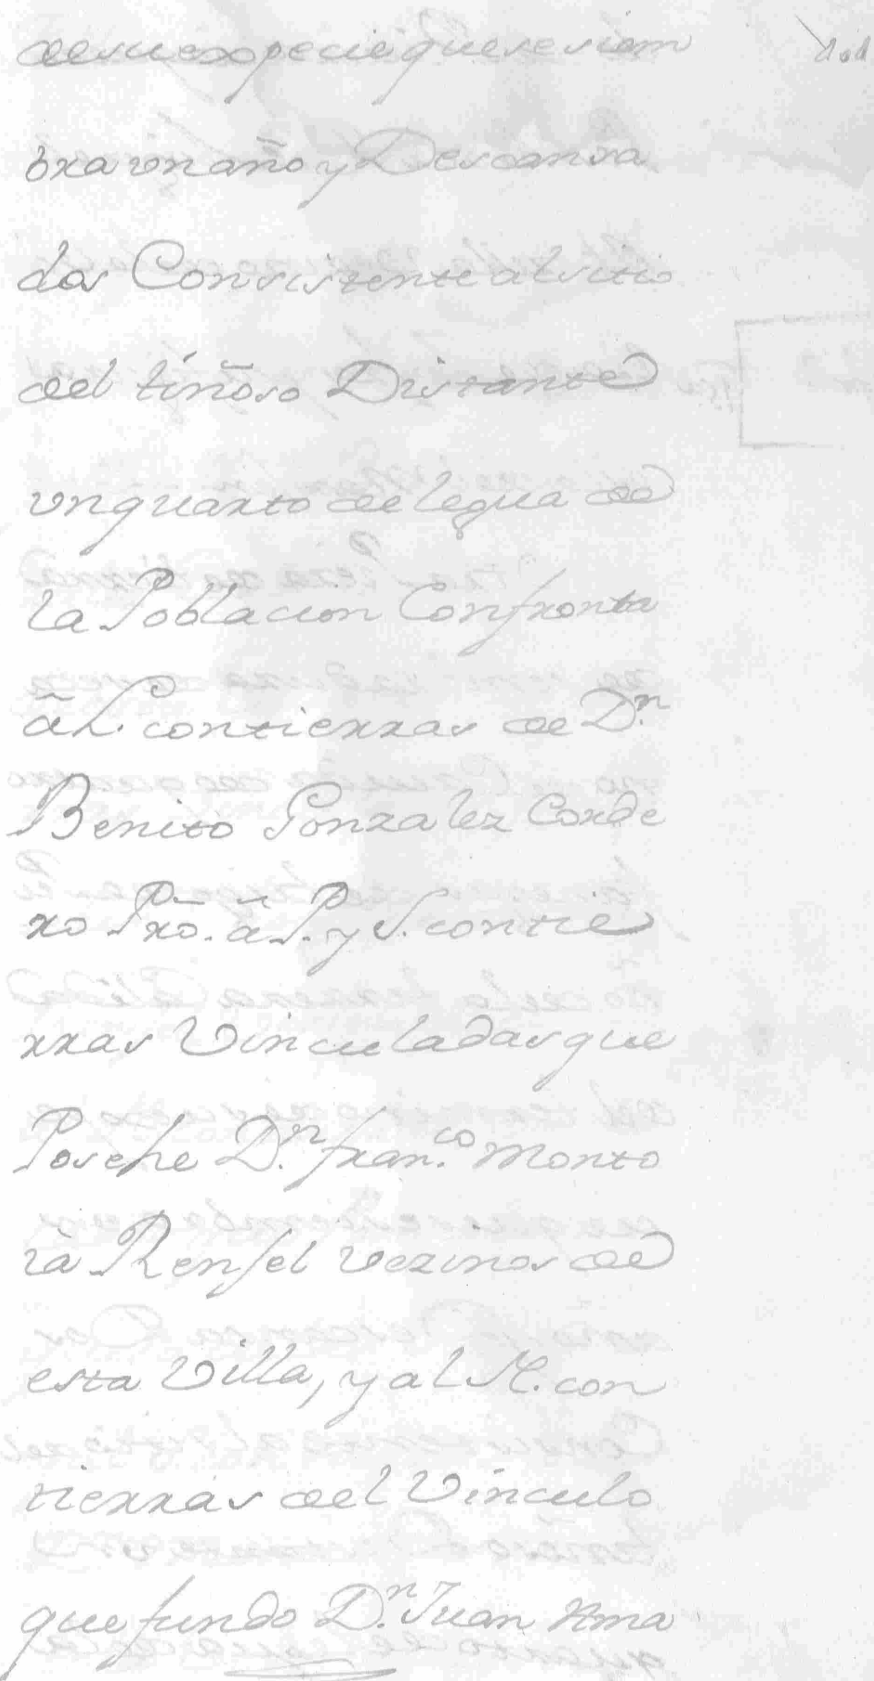 de su expecie que se siem
bra un año y Descansa
dos Consistente al sitio
del tiñoso Distante
un quarto de legua de
la Poblacion Confronta
à L. con tierras de D.n
Benito Gonzalez Corde
ro Pro. à P. y S. con tie
rras Vinculadas que
Poséhe D.n fran.co Monto
ià Rensel vezinos de
esta Villa, y al N. con
tierras del Vinculo
que fundo D.n Juan Ama